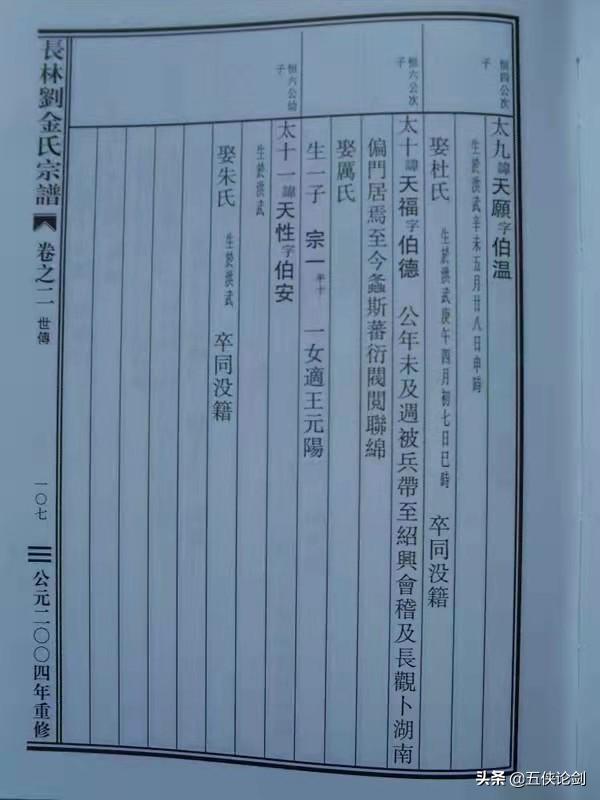 恒四公次子
太九諱天願字伯温
生於洪武辛未五月廿八日申時
娶杜氏 生於洪武庚午四月初七日巳時 卒同没籍
恒六公次子
太十諱天福字伯德 公年未及週被兵帶至紹興會稽及長觀卜湖南
偏門居焉至今螽斯蕃衍閥閲聯綿
娶厲氏
生一子 宗一 半十 一女適王元陽
恒六公幼子
太十一諱天性字伯安
生於洪武
娶朱氏 生於洪武 卒同没籍
長林劉金氏宗譜
卷之二 世傳
一〇七
公元二〇〇四年重修
头条 @五侠论剑